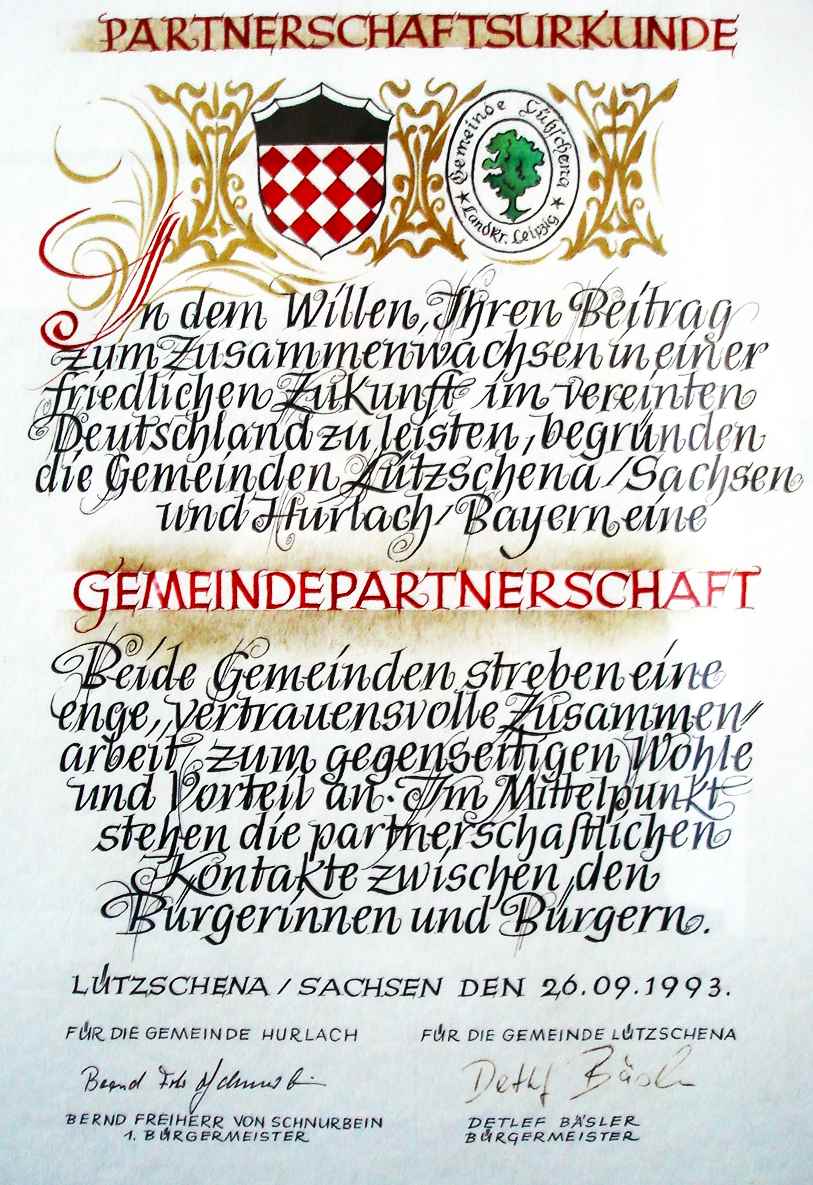 PARTNERSCHAFTSURKUNDE
Gemeinde Lützschena
Landkr. Leipzig
In dem Willen, Ihren Beitrag
zum Zusammenwachsen in einer
friedlichen Zukunft im vereinten
Deutschland zu leisten, begründen
die Gemeinden Lützschena/Sachsen
und Hurlach/Bayern eine
GEMEINDEPARTNERSCHAFT
Beide Gemeinden streben eine
enge, vertrauensvolle Zusammen-
arbeit zum gegenseitigen Wohle
und Vorteil an. Im Mittelpunkt
stehen die partnerschaftlichen
Kontakte zwischen den
Bürgerinnen und Bürgern.
LÜTZSCHENA / SACHSEN DEN 26.09.1993.
FÜR DIE GEMEINDE HURLACH
FÜR DIE GEMEINDE LÜTZSCHENA
Detlef Bäsler
BERND FREIHERR VON SCHNURBEIN
1. BÜRGERMEISTER
DETLEF BÄSLER
BÜRGERMEISTER